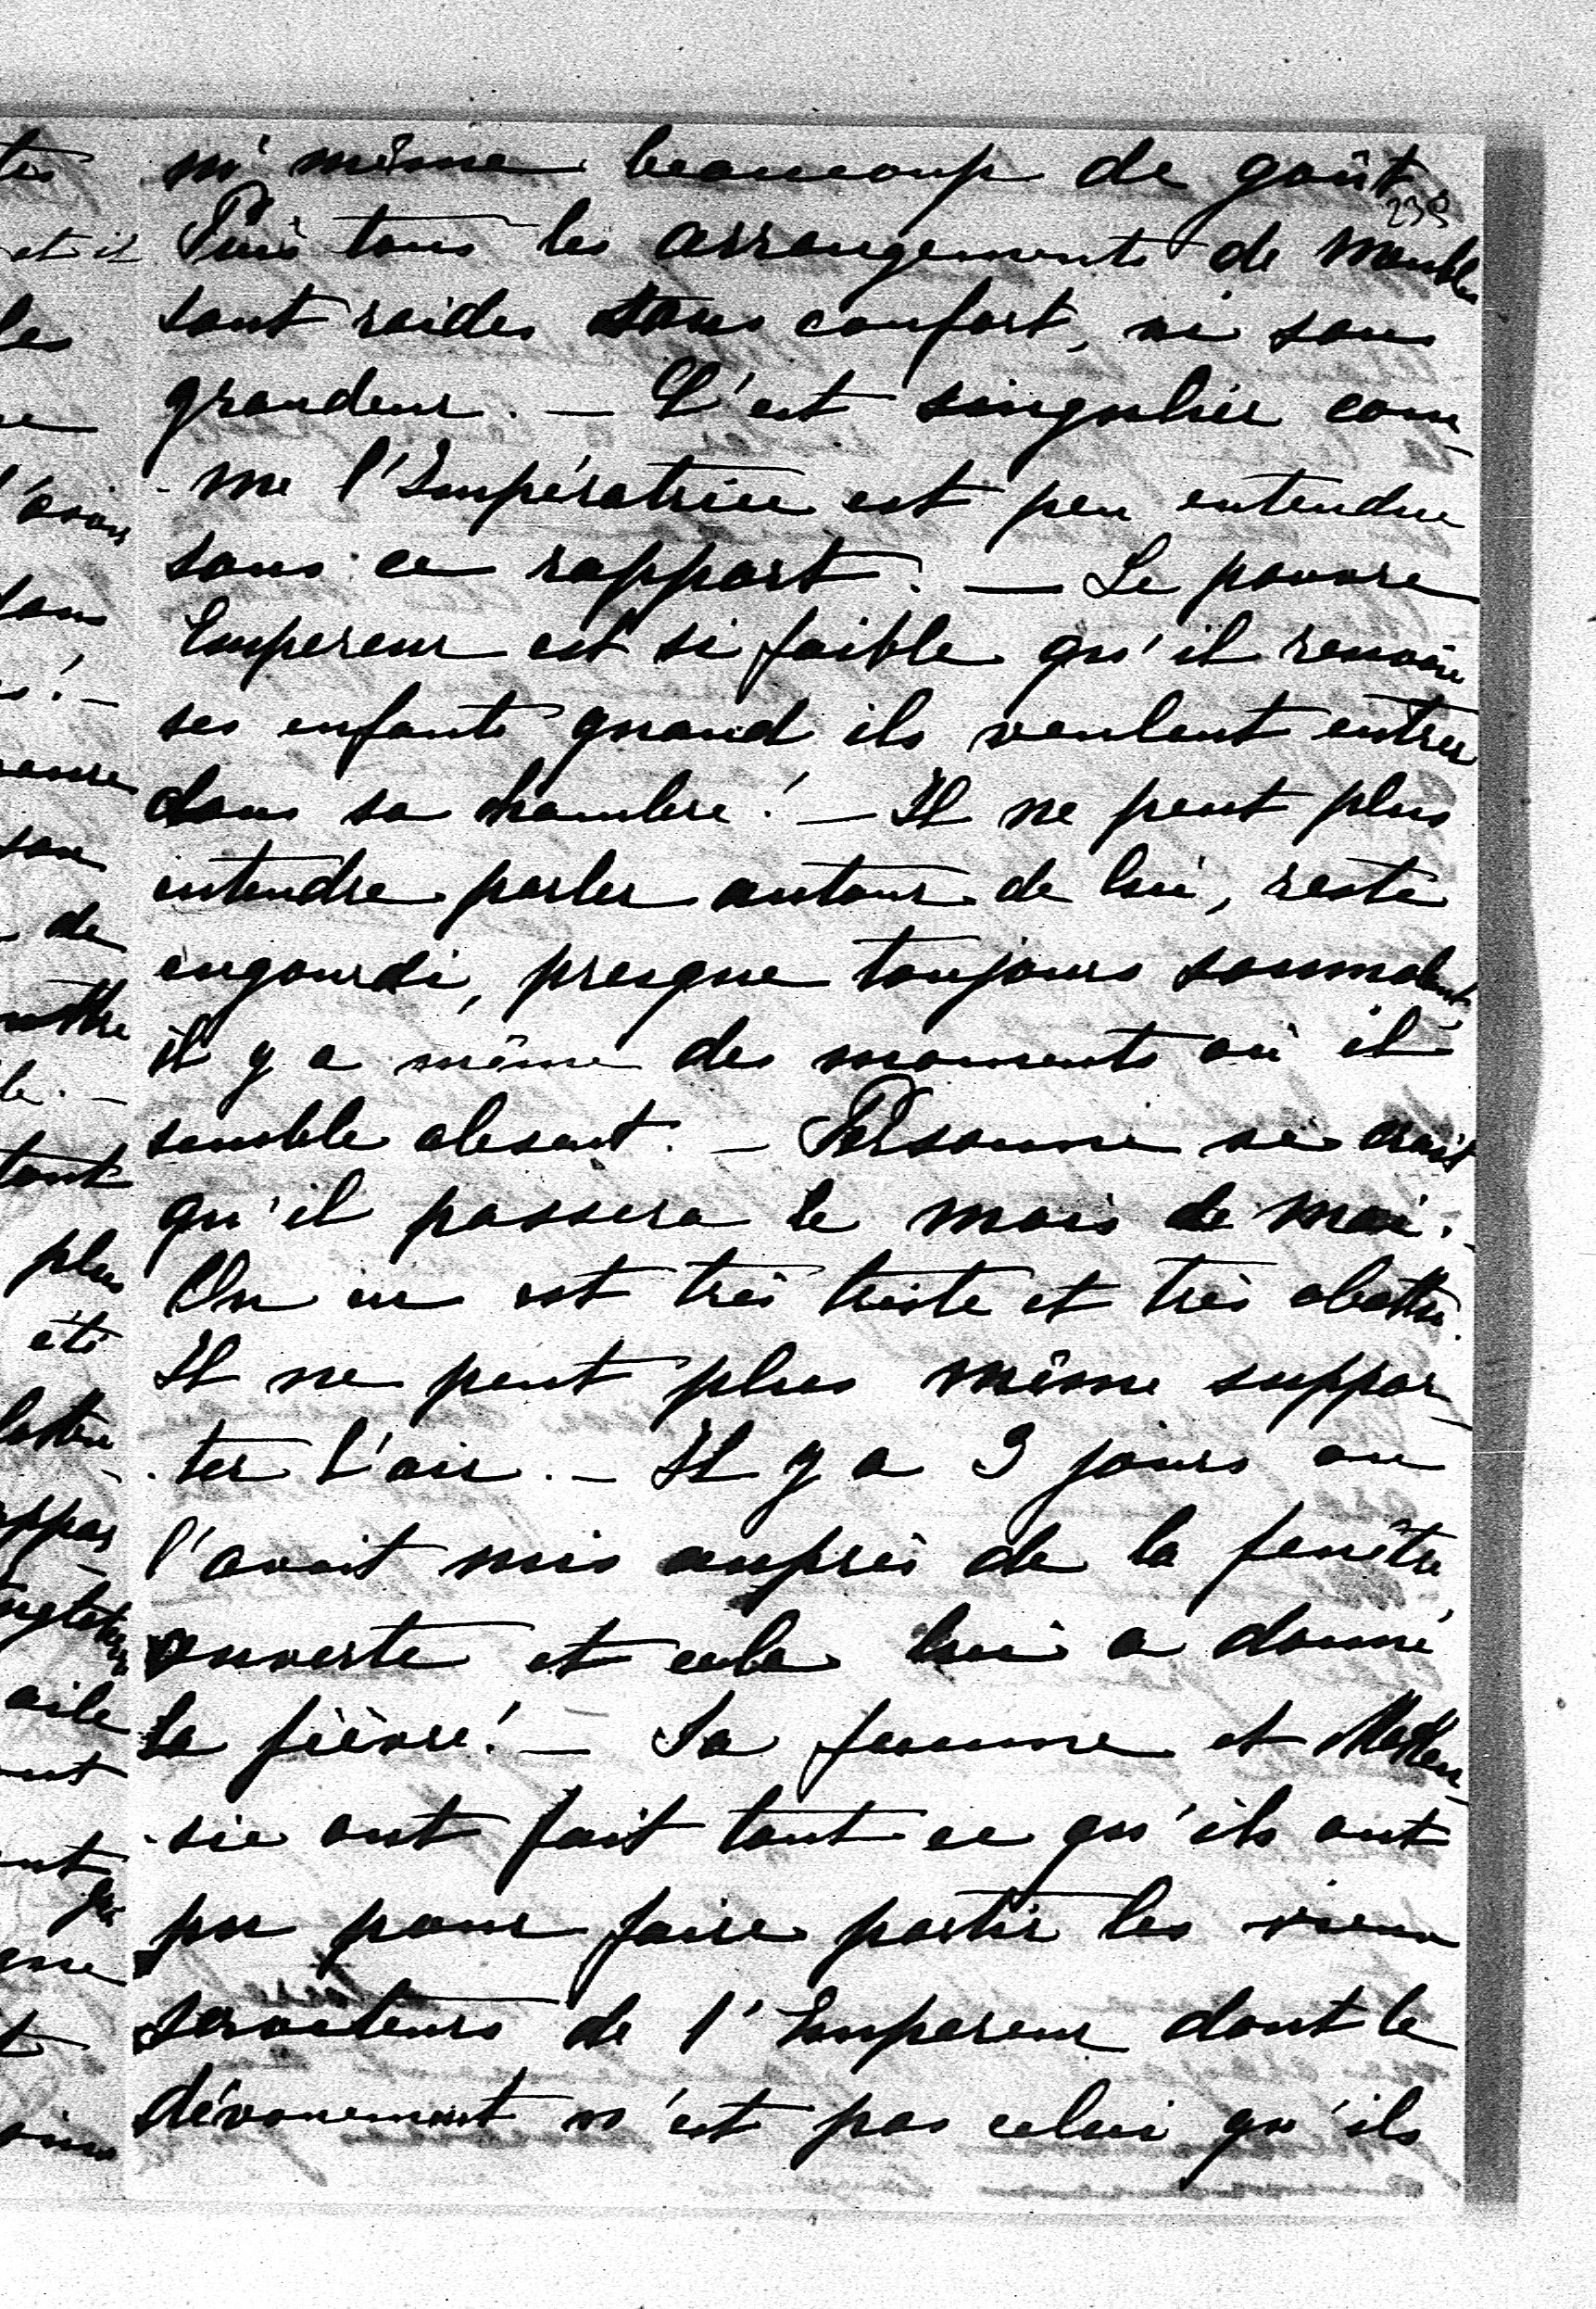 ni même beaucoup de goût.
239
Puis tous les arrangements de meubles
sont raides sans confort, ni sans
grandeur. — C'est singulier com-
-me l'Impératrice est peu entendue
sous ce rapport. — Le pauvre
Empereur est si faible qu'il renvoie
ses enfants quand ils veulent entrer
dans sa chambre! — Il ne peut plus
entendre parler autour de lui, reste
engourdi, presque toujours somnolent,
il y a même des moments où il
semble absent. — Personne ne croit
qu'il passera le mois de mai.
On en est très triste et très abattu.
Il ne peut plus même suppor-
-ter l'air. — Il y a 3 jours on
l'avait mis auprès de la fenêtre
ouverte et cela lui a donné
la fièvre! — Sa femme et Macken-
-sie ont fait tout ce qu'ils ont
pu pour faire partir les vieux
serviteurs de l'Empereur dont le
dévouement n'est pas celui qu'ils